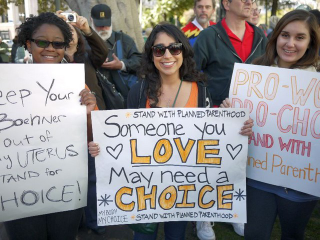 EEP YOUR
Boehner
OUT OF
Y UTERUS
STAND FOR
CHOICE!
STAND WITH PLANNED PARENTHOOD
Someone you
LOVE
May need a
CHOICE
MY BODY
MY CHOICE
STAND WITH PLANNED PARENTHOOD
PRO-WO
PRO-CHO
STAND WITH
nned Parenth